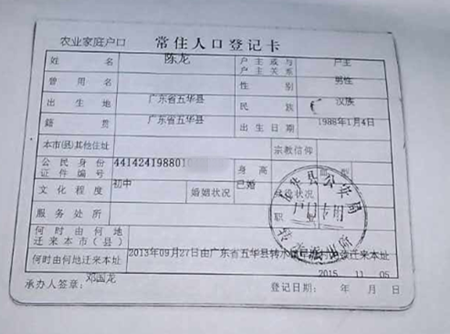 农业家庭户口 常住人口登记卡
姓名 陈龙 户主或与户主关系 户主
曾用名 性别 男性
出生地 广东省五华县 民族 汉族
籍贯 广东省五华县 出生日期 1988年1月4日
本市(县)其他住址 宗教信仰
公民身份证件编号 4414241988010 身高
文化程度 初中 婚姻状况 已婚
服务处所
何时由何地迁来本市(县)
何时由何地迁来本址 2013年09月27日由广东省五华县转水镇 迁来本址
2015 11 05
承办人签章: 邓国龙 登记日期: 年 月 日
五华县公安局
户口专用